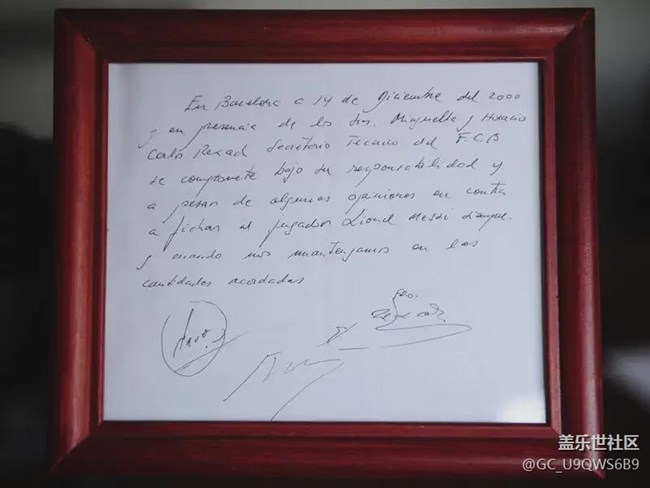 En Barcelona a 14 de Diciembre del 2000
y en presencia de los Srs. Minguella y Horacio
Carlos Rexach Secretario Técnico del F.C.B
se compromete bajo su responsabilidad y
a pesar de algunas opiniones en contra
a fichar al jugador Lionel Messi siempre
y cuando nos mantengamos en las
cantidades acordadas
盖乐世社区
@GC_U9QWS6B9